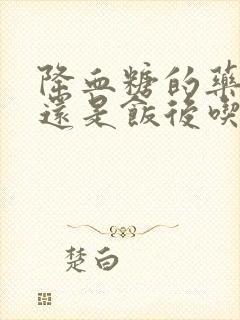 降血糖的藥
還是飯後喫
楚白